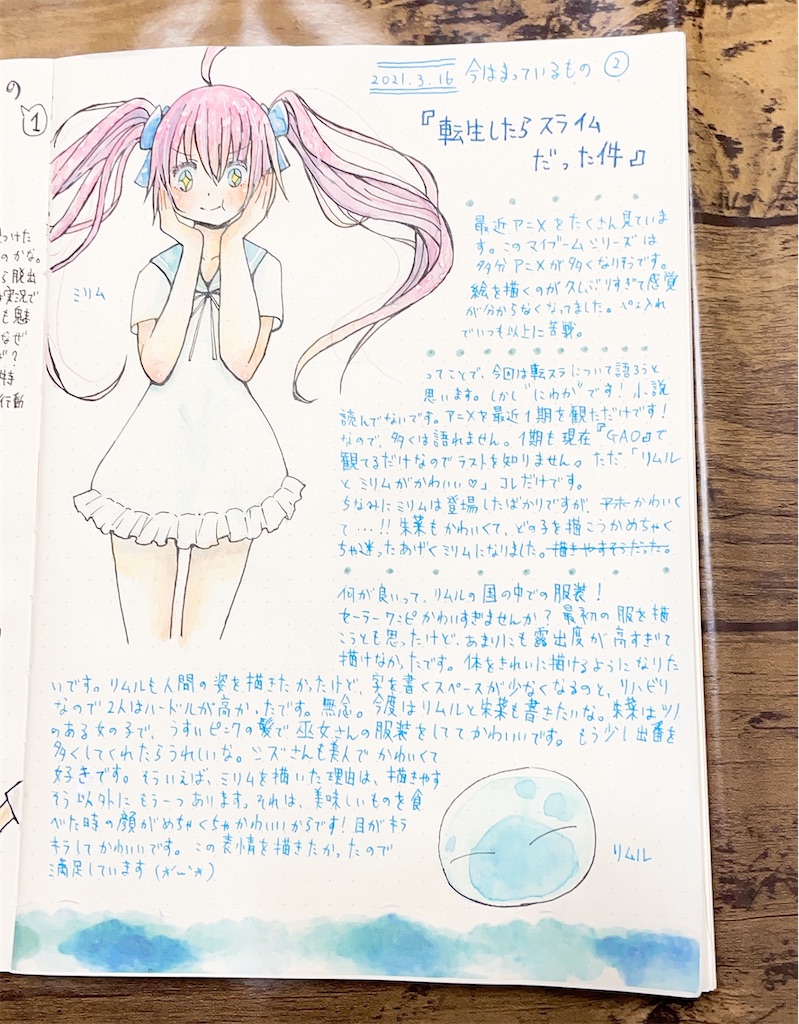 の
1
つけた
のかな。
ら脱出
実況で
も魅
なぜ
？
特
行動
2021.3.16 今はまっているもの ②
『転生したらスライム
だった件』
ミリム
最近アニメをたくさん見ていま
す。このマイブームシリーズは
多分アニメが多くなりそうです。
絵を描くのが久しぶりすぎて感覚
が分からなくなってました。ペン入れ
でいつも以上に苦戦。
ってことで、今回は転スラについて語ろうと
思います。しかし"にわか"です！小説
読んでないです。アニメを最近1期を観ただけです！
なので、多くは語れません。1期も現在『GAO』で
観てるだけなのでラストを知りません。ただ「リムル
とミリムがかわいい♡」コレだけです。
ちなみにミリムは登場したばかりですが、かわいく
て…!!朱菜もかわいくて、どの子を描こうかめちゃく
ちゃ迷ったあげくミリムになりました。描きやすそうだった。
何が良いって、リムルの国の中での服装！
セーラーワンピかわいすぎませんか？最初の服を描
こうとも思ったけど、あまりにも露出度が高すぎて
描けなかったです。体をきれいに描けるようになりた
いです。リムルも人間の姿を描きたかったけど、字を書くスペースが少なくなるのと、リハビリ
なので2人はハードルが高かったです。無念。今度はリムルと朱菜も書きたいな。朱菜はツノ
のある女の子で、うすいピンクの髪で巫女さんの服装をしててかわいいです。もう少し出番を
多くしてくれたらうれしいな。シズさんも美人でかわいくて
好きです。そういえば、ミリムを描いた理由は、描きやす
そう以外にもう一つあります。それは、美味しいものを食
べた時の顔がめちゃくちゃかわいいからです！目がキラ
キラしてかわいいです。この表情を描きたかったので
満足しています(*'ω'*)
リムル